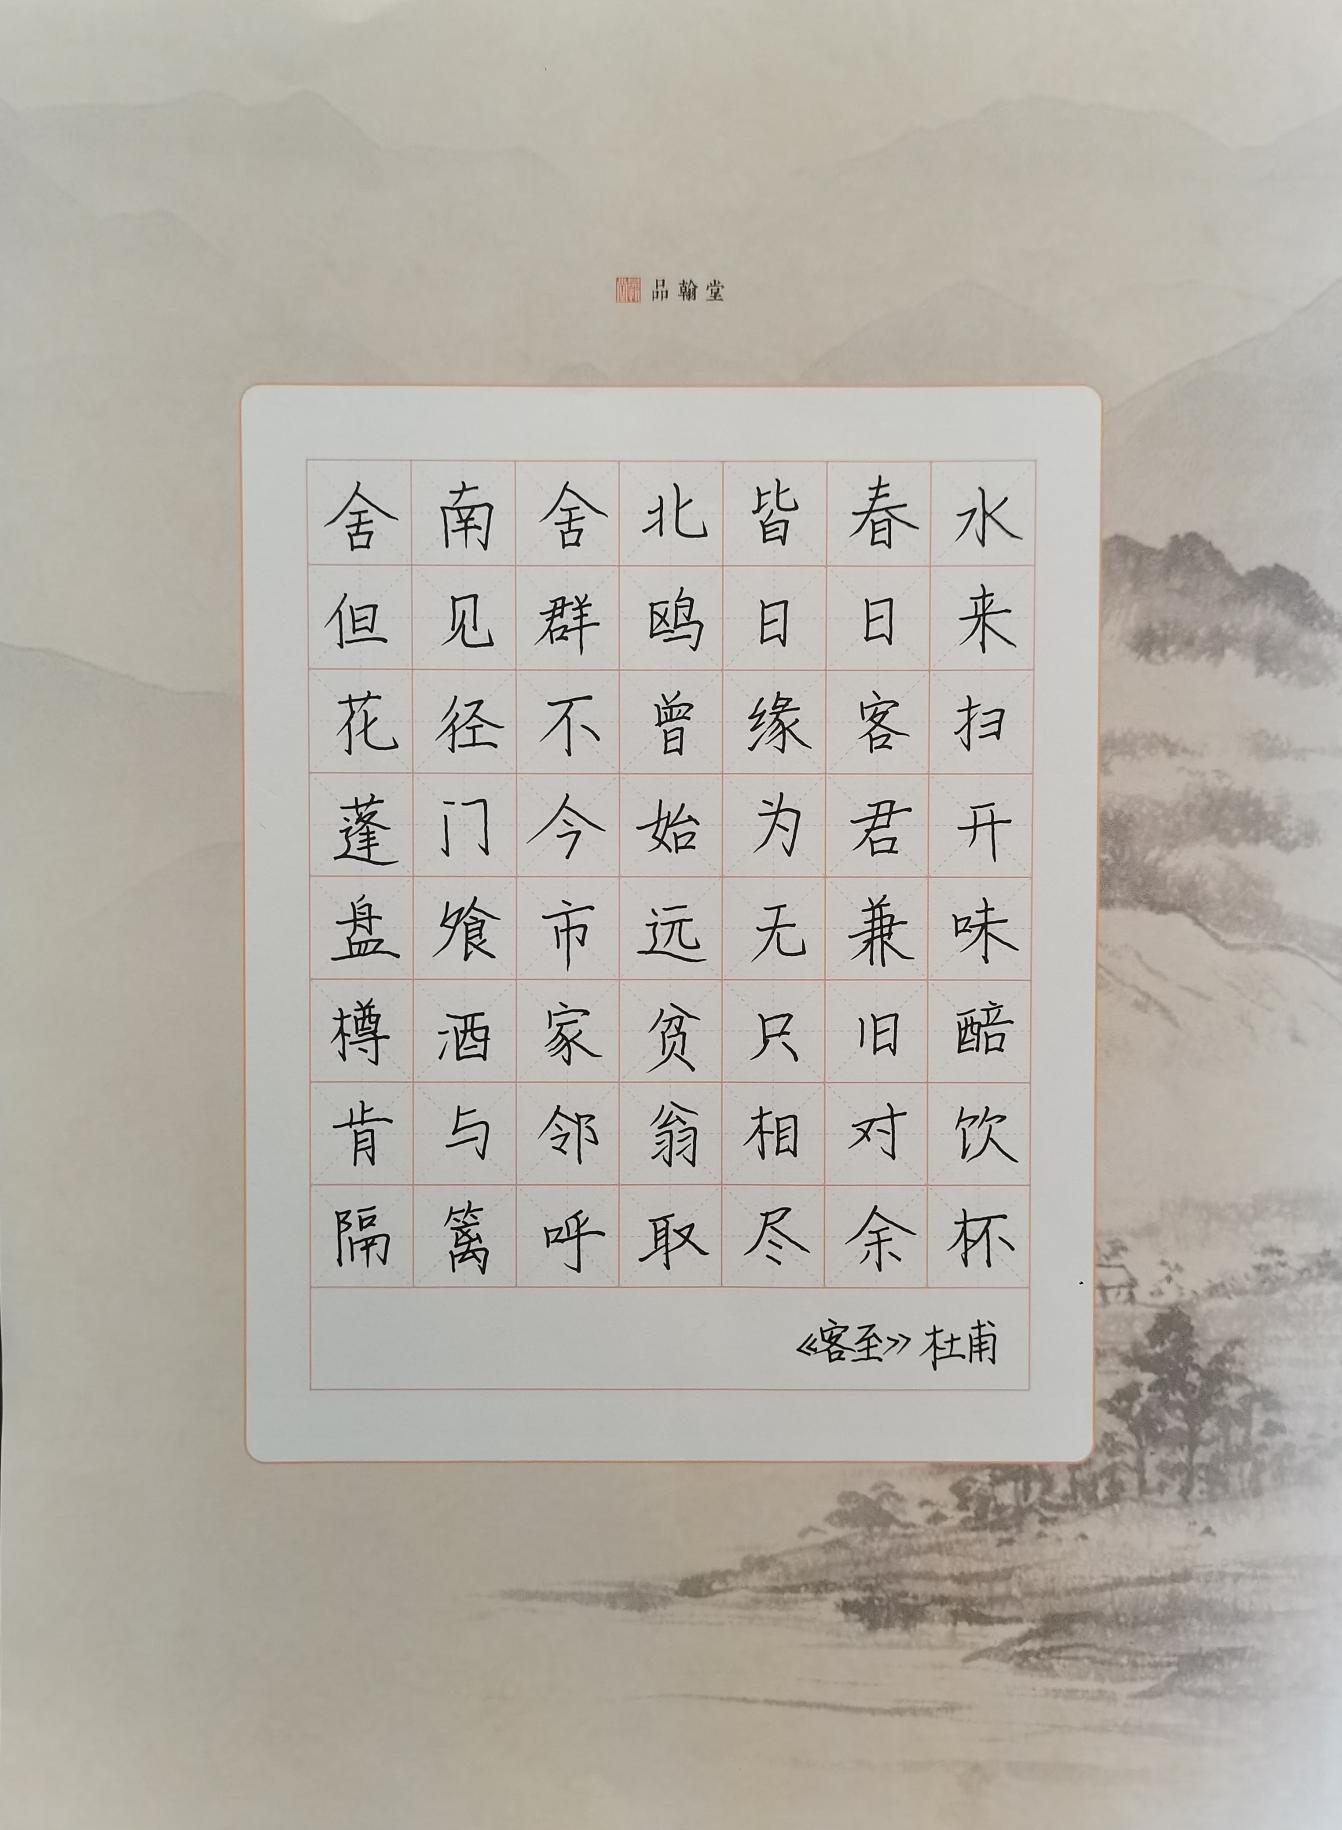 品翰堂
舍南舍北皆春水
但见群鸥日日来
花径不曾缘客扫
蓬门今始为君开
盘飧市远无兼味
樽酒家贫只旧醅
肯与邻翁相对饮
隔篱呼取尽余杯
《客至》杜甫